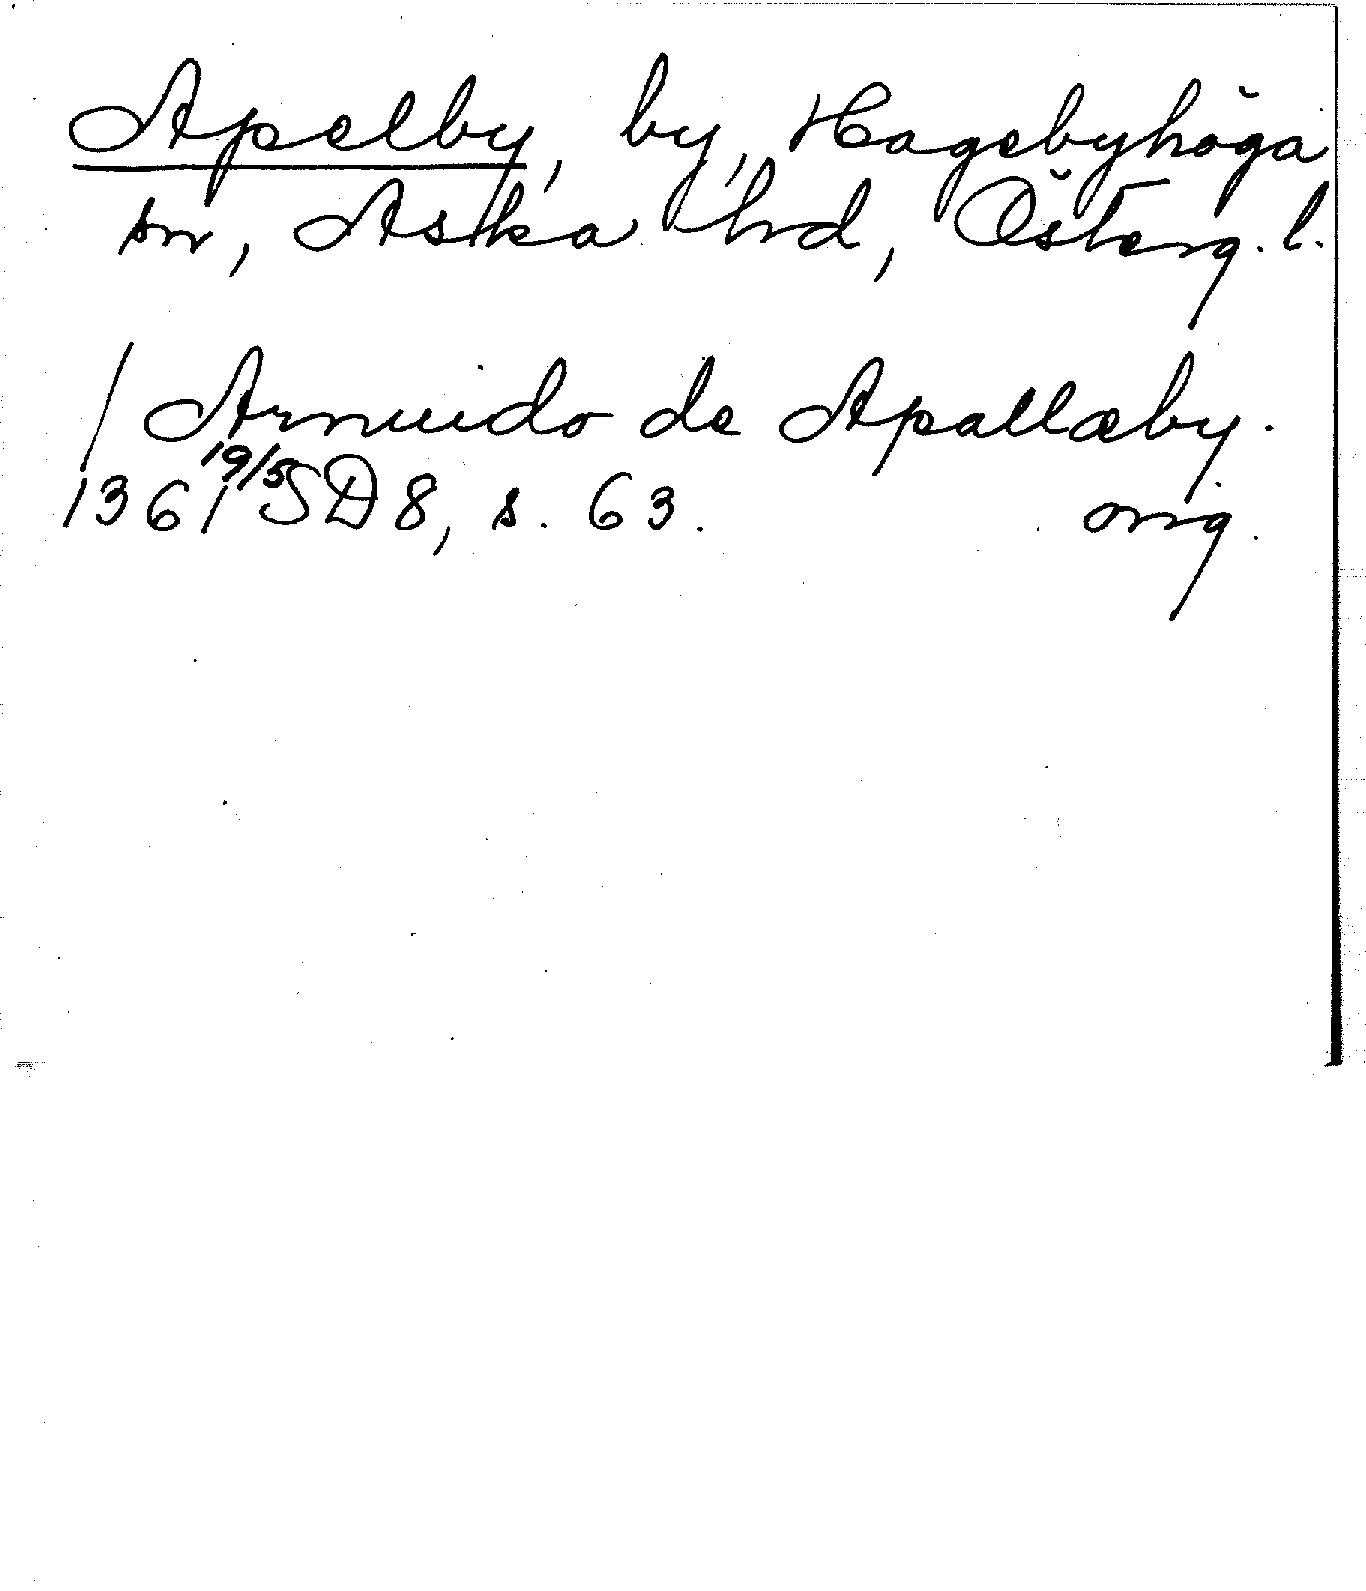 Apelby, by, Hagebyhöga
sn, Aska hd, Österg. l.
/ Arnuido de Apallæby.
1361 19/5 SD 8, s. 63. orig.